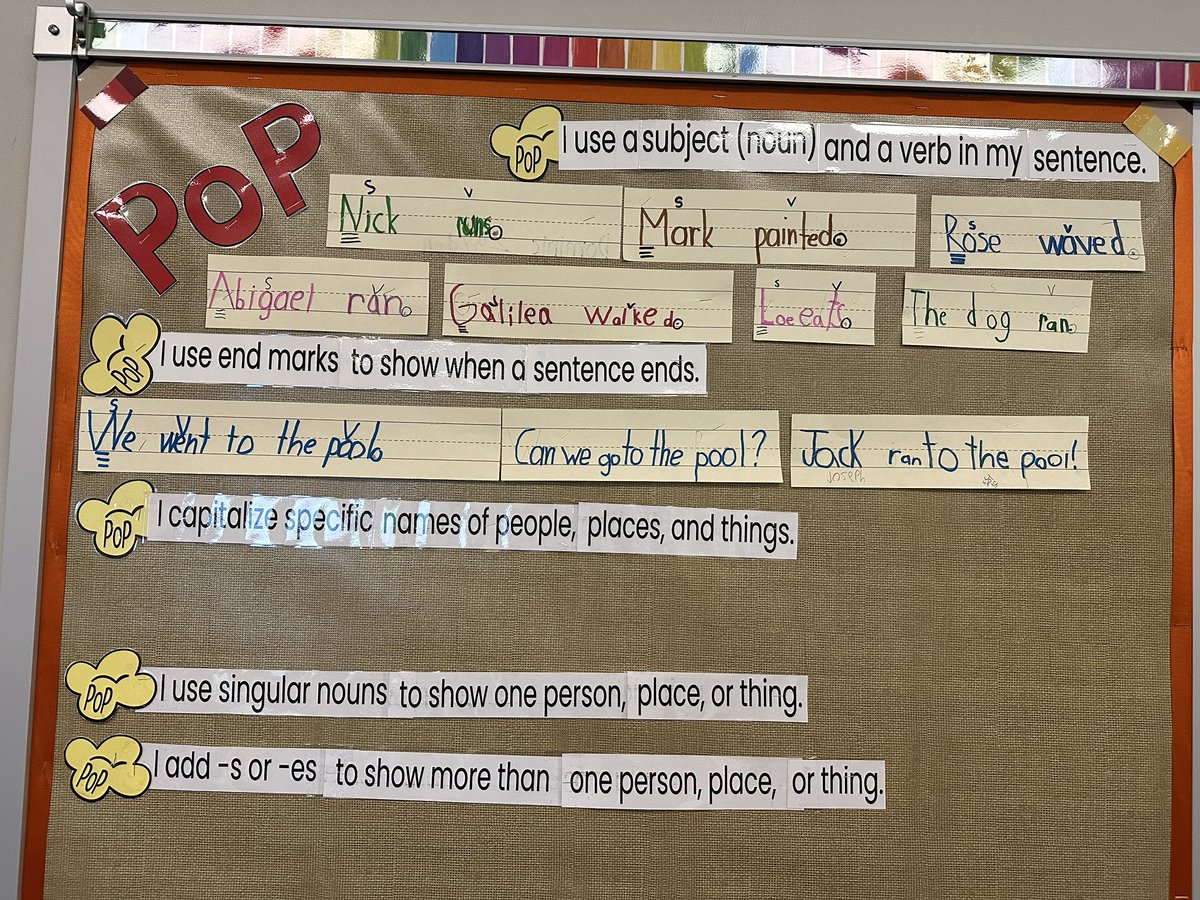 POP
POP I use a subject (noun) and a verb in my sentence.
S V S V
Nick runs. Mark painted. Rose waved.
Abigael ran. Galilea walked. Loe eats. The dog ran.
POP I use end marks to show when a sentence ends.
We went to the pool. Can we go to the pool? Jack ran to the pool!
Joseph
POP I capitalize specific names of people, places, and things.
POP I use singular nouns to show one person, place, or thing.
POP I add -s or -es to show more than one person, place, or thing.